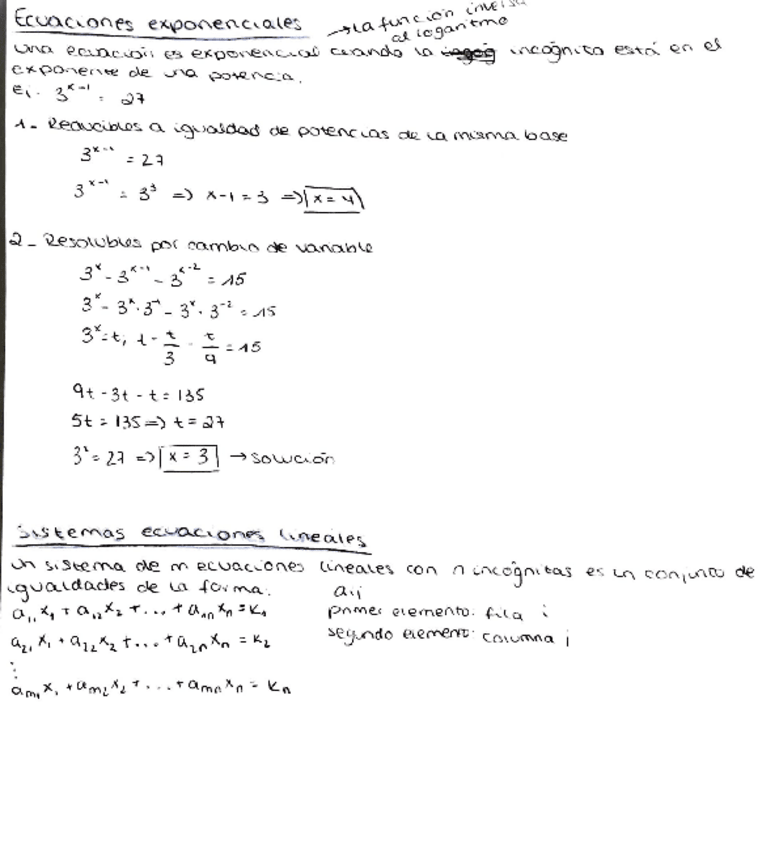 Ecuaciones exponenciales → La función inversa
al logaritmo
Una ecuación es exponencial cuando la incógnita está en el
exponente de una potencia.
Ej. 3^(x-1) = 27
1- Reducibles a igualdad de potencias de la misma base
3^(x-1) = 27
3^(x-1) = 3^3 => x-1 = 3 => x = 4
2- Resolubles por cambio de variable
3^x - 3^(x-1) - 3^(x-2) = 15
3^x - 3^x · 3^-1 - 3^x · 3^-2 = 15
3^x = t; t - t/3 - t/9 = 15
9t - 3t - t = 135
5t = 135 => t = 27
3^x = 27 => x = 3 → solución
Sistemas ecuaciones lineales
Un sistema de m ecuaciones lineales con n incógnitas es un conjunto de
igualdades de la forma. aij
a₁₁x₁ + a₁₂x₂ + ... + a₁ₙxₙ = k₁ primer elemento: fila i
a₂₁x₁ + a₂₂x₂ + ... + a₂ₙxₙ = k₂ segundo elemento: columna j
⋮
aₘ₁x₁ + aₘ₂x₂ + ... + aₘₙxₙ = kₙ